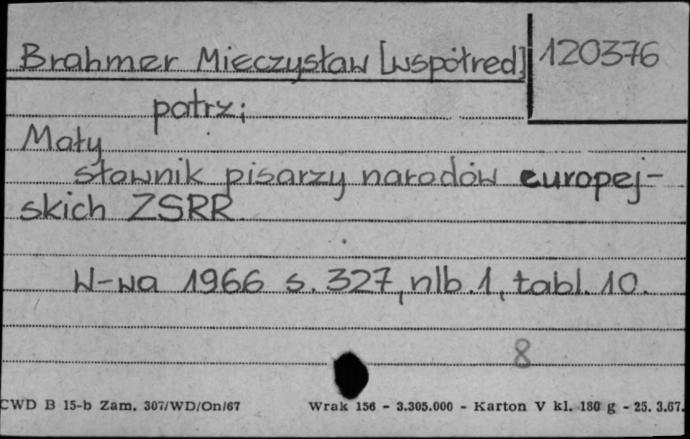 Brahmer Mieczysław [współred] 120376
patrz:
Mały
słownik pisarzy narodów europej-
skich ZSRR.
W-wa 1966 s. 327, nlb. 1, tabl. 10.
8
CWD B 15-b Zam. 307/WD/On/67 Wrak 156 - 3.305.000 - Karton V kl. 180 g - 25. 3.67.